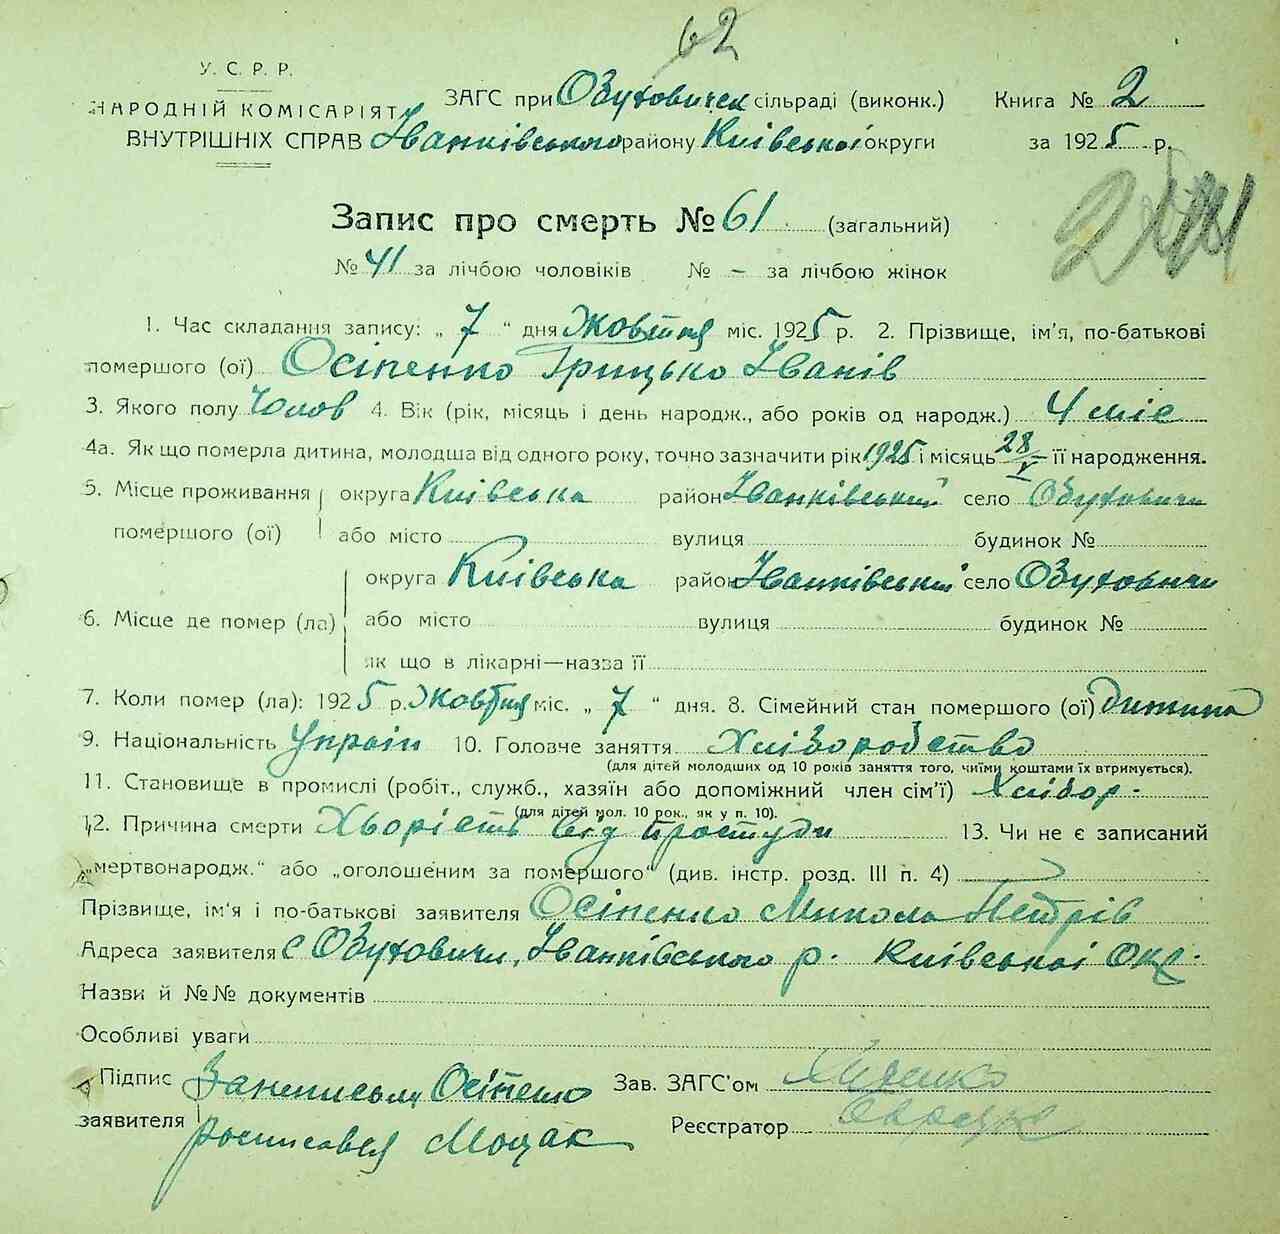 62
У. С. Р. Р.
НАРОДНІЙ КОМІСАРІЯТ
ВНУТРІШНІХ СПРАВ
ЗАГС при Обуховичск сільраді (виконк.) Книга № 2
Іванківського району Київської округи за 1925 р.
Запис про смерть № 61 (загальний)
№ 41 за лічбою чоловіків № – за лічбою жінок
1. Час складання запису: „ 7 “ дня Жовтня міс. 1925 р. 2. Прізвище, ім'я, по-батькові
помершого (ої) Осіпенко Грицько Іванів
3. Якого полу Чолов 4. Вік (рік, місяць і день народж., або років од народж.) 4 міс
4а. Як що померла дитина, молодша від одного року, точно зазначити рік 1925 і місяць 28/V її народження.
5. Місце проживання округа Київська район Іванківський село Обуховичи
помершого (ої) або місто вулиця будинок №
округа Київська район Іванківський село Обуховичи
6. Місце де помер (ла) або місто вулиця будинок №
як що в лікарні—назва її
7. Коли помер (ла): 1925 р. Жовтня міс. „ 7 “ дня. 8. Сімейний стан помершого (ої) Дитина
9. Національність Украін 10. Головче заняття Хлібороbство
(для дітей молодших од 10 років заняття того, чиїми коштами їх втримується).
11. Становище в промислі (робіт., служб., хазяїн або допоміжний член сім'ї) Хлібор.
(для дітей мол. 10 рок., як у п. 10).
12. Причина смерти Хьорість від простуди 13. Чи не є записаний
„мертвонародж.“ або „оголошеним за помершого“ (див. інстр. розд. III п. 4)
Прізвище, ім'я і по-батькові заявителя Осіпенко Микола Петрів
Адреса заявителя с Обуховичи, Іванківського р. Київської Окр.
Назви й №№ документів
Особливі уваги
Підпис Осіпенко Зав. ЗАГС'ом
заявителя росписався Моцак Реєстратор